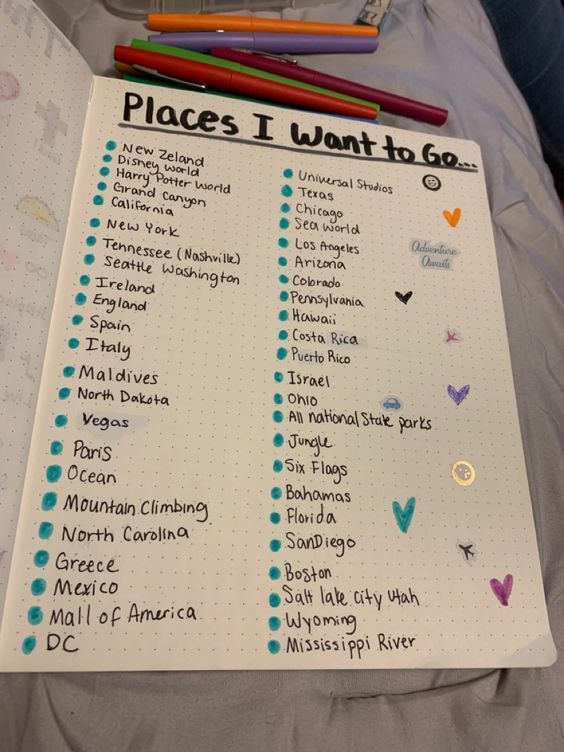 Places I Want to Go...
New Zeland
Disney World
Harry Potter World
Grand Canyon
California
New York
Tennessee (Nashville)
Seattle Washington
Ireland
England
Spain
Italy
Maldives
North Dakota
Vegas
Paris
Ocean
Mountain Climbing
North Carolina
Greece
Mexico
Mall of America
DC
Universal Studios
Texas
Chicago
Sea World
Los Angeles
Arizona
Colorado
Pennsylvania
Hawaii
Costa Rica
Puerto Rico
Israel
Ohio
All national State parks
Jungle
Six Flags
Bahamas
Florida
SanDiego
Boston
Salt lake city Utah
Wyoming
Mississippi River
Adventure
Awaits